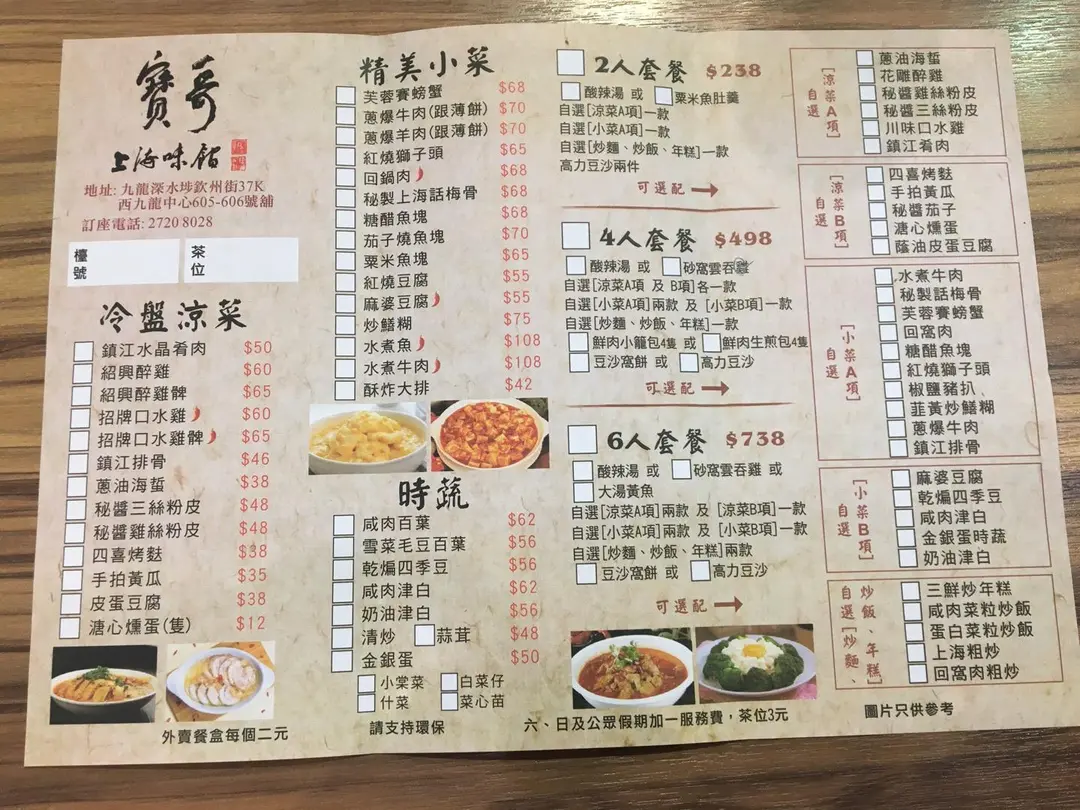 寶哥
上海味館
地址: 九龍深水埗欽州街37K
西九龍中心605-606號舖
訂座電話: 2720 8028
檯號
茶位
冷盤涼菜
鎮江水晶肴肉 $50
紹興醉雞 $60
紹興醉雞髀 $65
招牌口水雞 $60
招牌口水雞髀 $65
鎮江排骨 $46
蔥油海蜇 $38
秘醬三絲粉皮 $48
秘醬雞絲粉皮 $48
四喜烤麩 $38
手拍黃瓜 $35
皮蛋豆腐 $38
溏心燻蛋(隻) $12
外賣餐盒每個二元
精美小菜
芙蓉賽螃蟹 $68
蔥爆牛肉(跟薄餅) $70
蔥爆羊肉(跟薄餅) $70
紅燒獅子頭 $65
回鍋肉 $68
秘製上海話梅骨 $68
糖醋魚塊 $68
茄子燒魚塊 $70
粟米魚塊 $65
紅燒豆腐 $55
麻婆豆腐 $55
炒鱔糊 $75
水煮魚 $108
水煮牛肉 $108
酥炸大排 $42
時蔬
咸肉百葉 $62
雪菜毛豆百葉 $56
乾煸四季豆 $56
咸肉津白 $62
奶油津白 $56
清炒 蒜茸 $48
金銀蛋 $50
小棠菜 白菜仔
什菜 菜心苗
請支持環保
2人套餐 $238
酸辣湯 或 粟米魚肚羹
自選[涼菜A項]一款
自選[小菜A項]一款
自選[炒麵、炒飯、年糕]一款
高力豆沙兩件
可選配
4人套餐 $498
酸辣湯 或 砂窩雲吞雞
自選[涼菜A項 及 B項]各一款
自選[小菜A項]兩款 及 [小菜B項]一款
自選[炒麵、炒飯、年糕]一款
鮮肉小籠包4隻 或 鮮肉生煎包4隻
豆沙窩餅 或 高力豆沙
可選配
6人套餐 $738
酸辣湯 或 砂窩雲吞雞 或
大湯黃魚
自選[涼菜A項]兩款 及 [涼菜B項]一款
自選[小菜A項]兩款 及 [小菜B項]一款
自選[炒麵、炒飯、年糕]兩款
豆沙窩餅 或 高力豆沙
可選配
六、日及公眾假期加一服務費，茶位3元
自選[涼菜A項]
蔥油海蜇
花雕醉雞
秘醬雞絲粉皮
秘醬三絲粉皮
川味口水雞
鎮江肴肉
自選[涼菜B項]
四喜烤麩
手拍黃瓜
秘醬茄子
溏心燻蛋
蔭油皮蛋豆腐
自選[小菜A項]
水煮牛肉
秘製話梅骨
芙蓉賽螃蟹
回窩肉
糖醋魚塊
紅燒獅子頭
椒鹽豬扒
韮黃炒鱔糊
蔥爆牛肉
鎮江排骨
自選[小菜B項]
麻婆豆腐
乾煸四季豆
咸肉津白
金銀蛋時蔬
奶油津白
自選[炒麵、炒飯、年糕]
三鮮炒年糕
咸肉菜粒炒飯
蛋白菜粒炒飯
上海粗炒
回窩肉粗炒
圖片只供參考